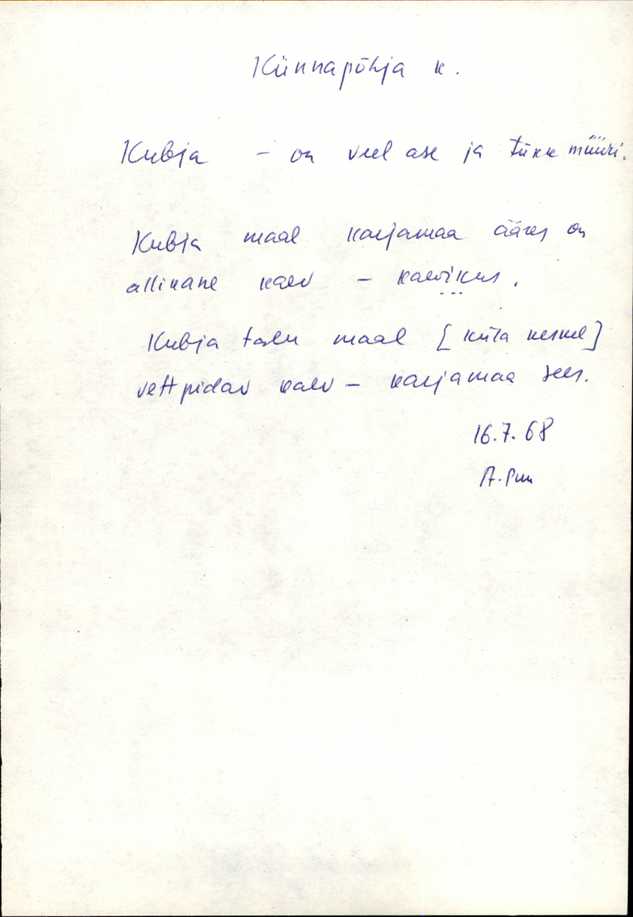 Künnapõhja k.
Kubja - on veel ase ja tükk müüri.
Kubja maal karjamaa ääres on
allikane kaev - kaevikus.
Kubja talu maal [küla keskel]
vettpidav kaev - karjamaa sees.
16.7.68
A.